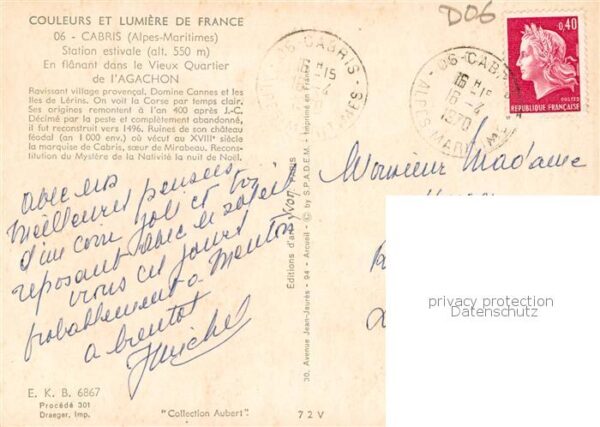 COULEURS ET LUMIÈRE DE FRANCE
06 - CABRIS (Alpes-Maritimes)
Station estivale (alt. 550 m)
En flânant dans le Vieux Quartier
de l'AGACHON
Ravissant village provençal, Domine Cannes et les
Iles de Lérins. On voit la Corse par temps clair.
Ses origines remontent à l'an 400 après J.-C.
Décimé par la peste et complètement abandonné,
il fut reconstruit vers 1496. Ruines de son château
féodal (an 1 000 env.) où vécut au XVIIIe siècle
la marquise de Cabris, sœur de Mirabeau. Recons-
titution du Mystère de la Nativité la nuit de Noël.
avec nos
meilleures pensées
d'un coin joli et
reposant avec le soleil
vous ces jours
probablement a Menton
a bientot
Michel
E. K. B. 6867
Procédé 301
Draeger, Imp.
"Collection Aubert"
72 V
Editions d'art Yvon, Paris
© by S.P.A.D.E.M. - Imprimé en France
30, Avenue Jean-Jaurès - 94 - Arcueil
D06
06 - CABRIS
06 - CABRIS
ALPES MARITIMES
16 H 15
16 - 4
1970
0,40
REPUBLIQUE FRANÇAISE
POSTES
Monsieur Madame
privacy protection
Datenschutz